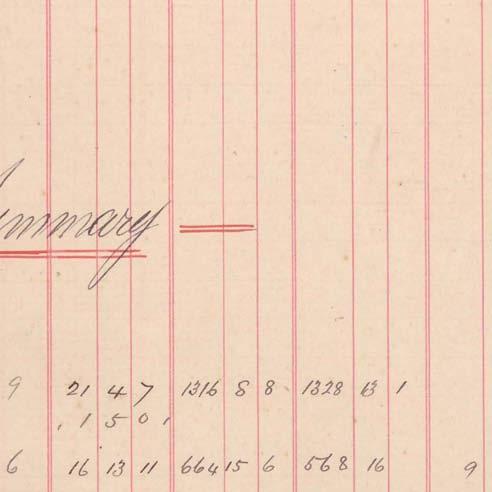 ummary
9 21 4 7 1316 8 8 1328 13 1
, 1 5 0 ,
6 16 13 11 664 15 6 568 16 9